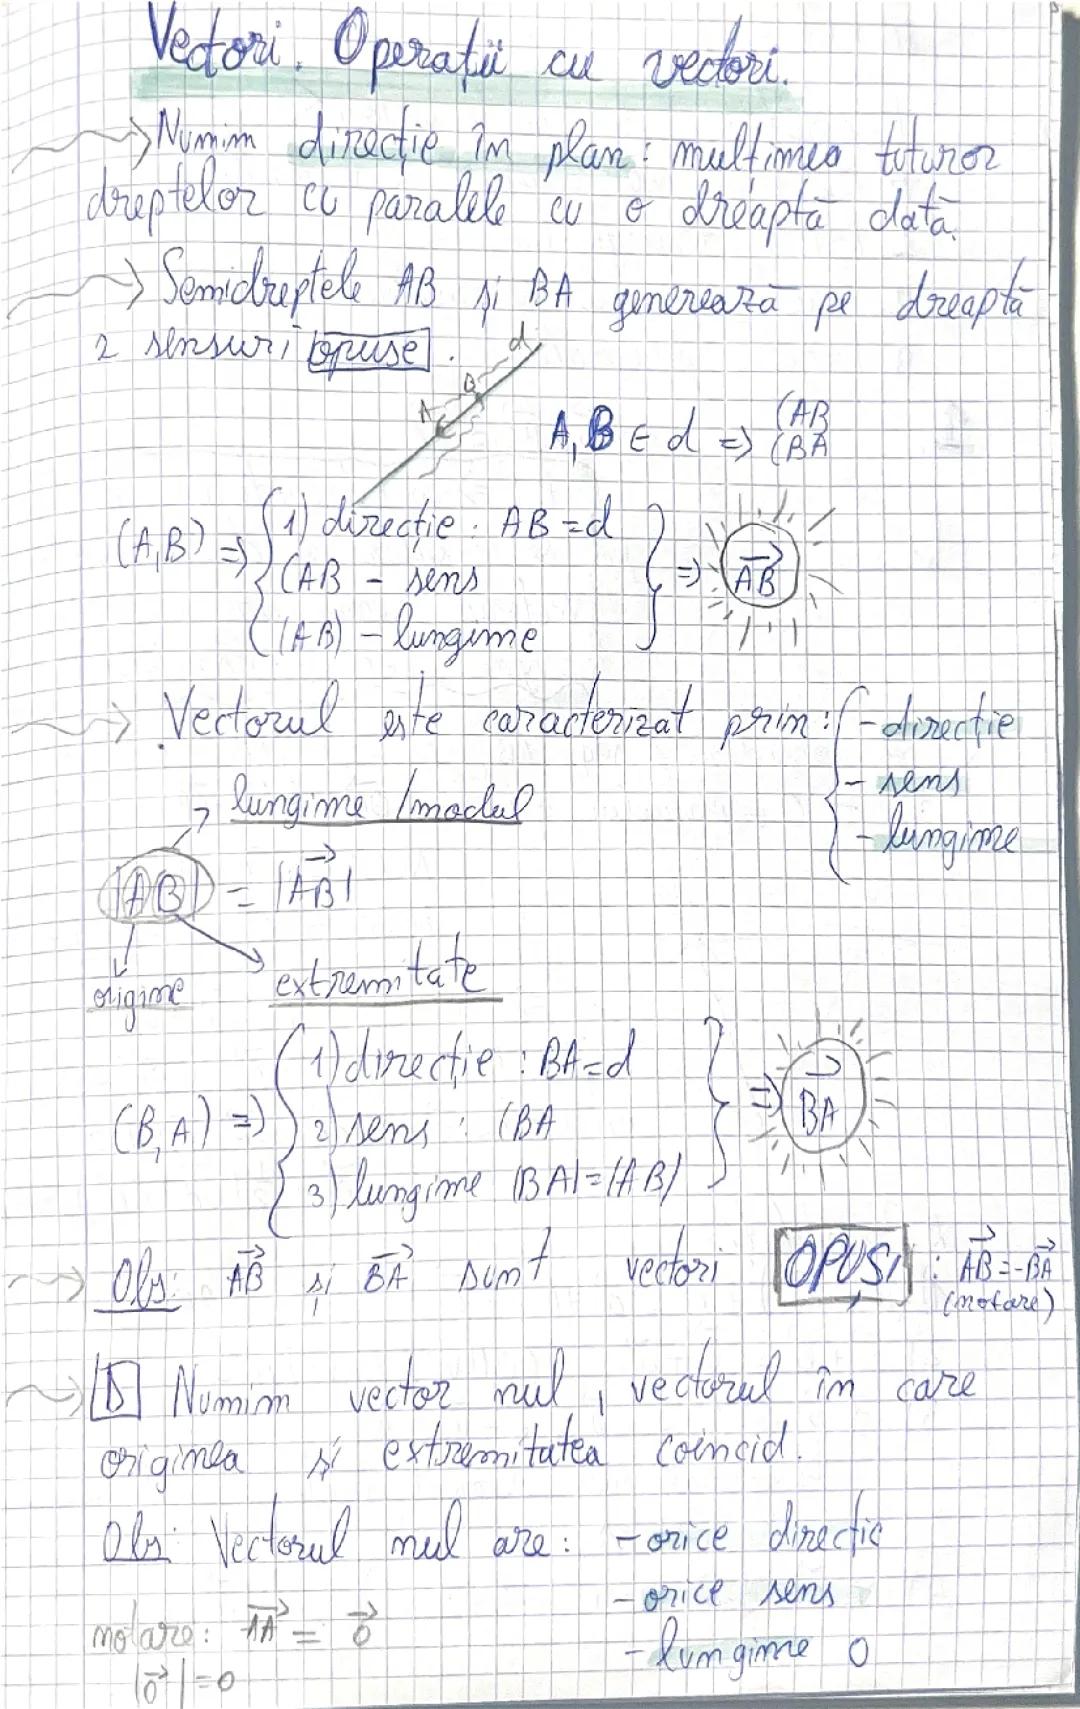 Vectori. Operații cu vectori.
Numim direcție în plan: mulțimea tuturor
dreptelor cu paralele cu o dreaptă dată.
Semidreptele AB și BA generează pe dreaptă
2 sensuri opuse.
d
B
A
A, B ∈ d => (AB
(BA
(A,B) => { 1) direcție: AB = d
(AB - sens
|AB| - lungime
} => \overrightarrow{AB}
Vectorul este caracterizat prim: { - direcție
- sens
- lungime
lungime /modul
|AB| = |\overrightarrow{AB}|
origine
extremitate
(B,A) => { 1) direcție : BA = d
2) sens : (BA
3) lungime |BA| = |AB|
} => \overrightarrow{BA}
Obs: \overrightarrow{AB} și \overrightarrow{BA} sunt vectori OPUȘI : \overrightarrow{AB} = -\overrightarrow{BA}
(notare)
D Numim vector nul, vectorul în care
originea și extremitatea coincid.
Obs: Vectorul nul are: - orice direcție
- orice sens
notare: \overrightarrow{AA} = \overrightarrow{0}
- lungime 0
|\overrightarrow{0}| = 0